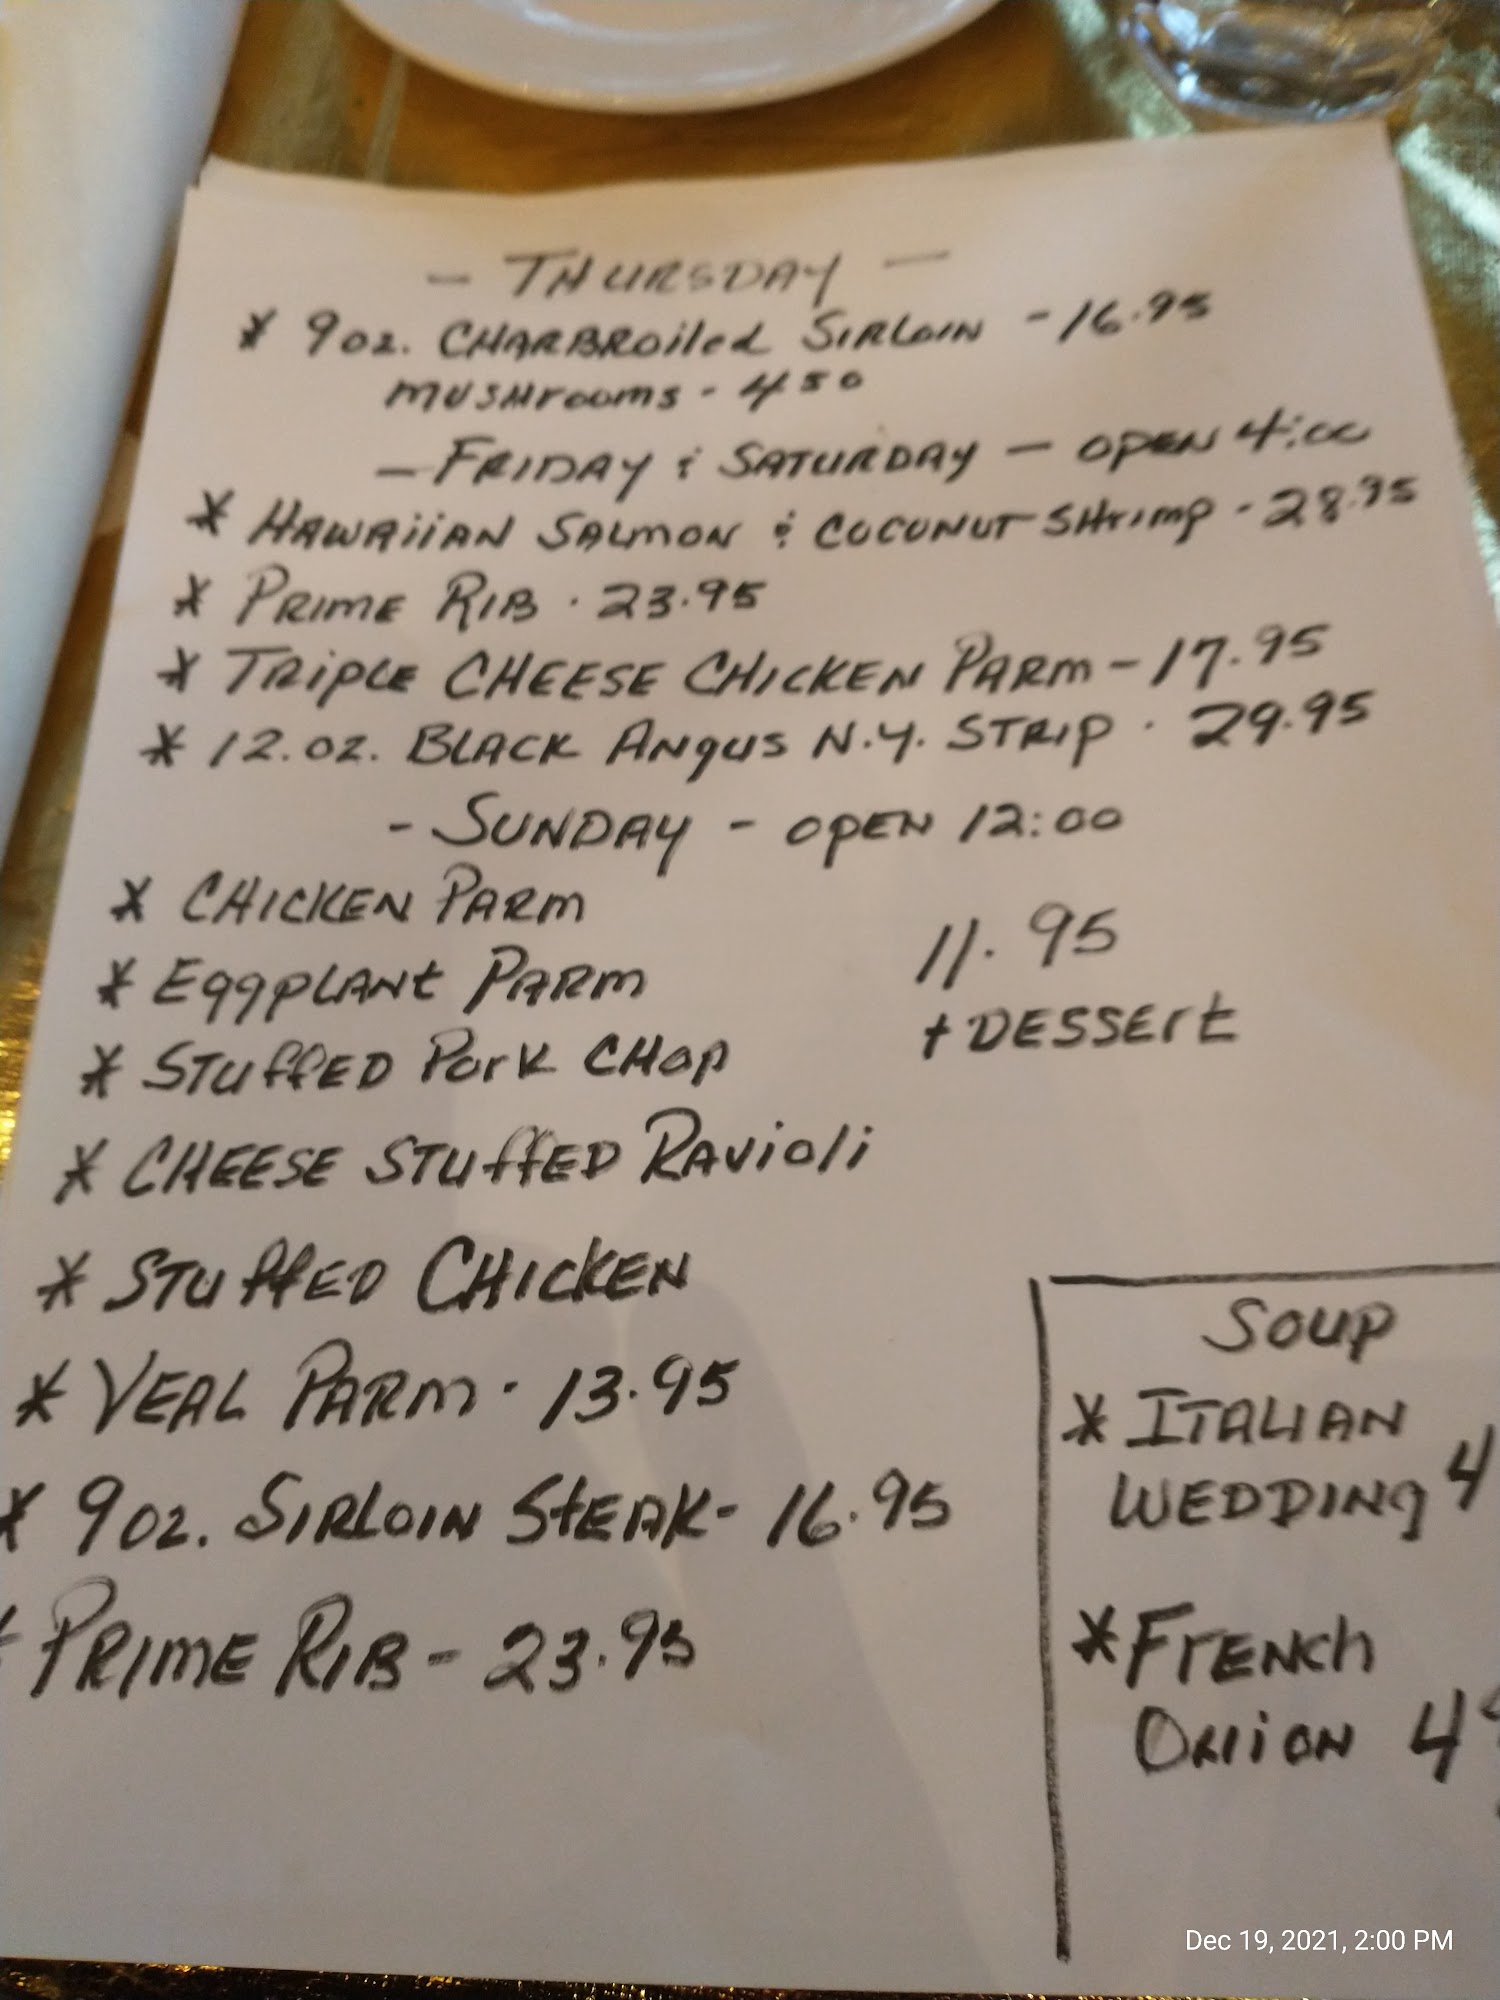 - THURSDAY -
* 9 oz. CHARBROiled SIRLOIN - 16.95
MUSHrooms - 4 50
- FRIDAY & SATURDAY - OPEN 4:00
* HAWAiiAN SALMON & COCONUT SHrimp - 28.95
* PRIME RIB . 23.95
* TRiPLE CHEESE CHICKEN PARM - 17.95
* 12.oz. BLACK ANgUS N.Y. STRIP . 29.95
- SUNDAY - OPEN 12:00
* CHICKEN PARM
* EggPLANt PARM
* STUffED PorK CHOP
* CHEESE STUffED RAVioli
* STUffED CHICKEN
11.95
+ DESSErt
* VEAL PARM . 13.95
* 9 oz. SIRLOIN StEAK - 16.95
* PRIME RIB - 23.95
SOUP
* ITALIAN
WEDDINg 4
* FrENCh
ONiON 4
Dec 19, 2021, 2:00 PM